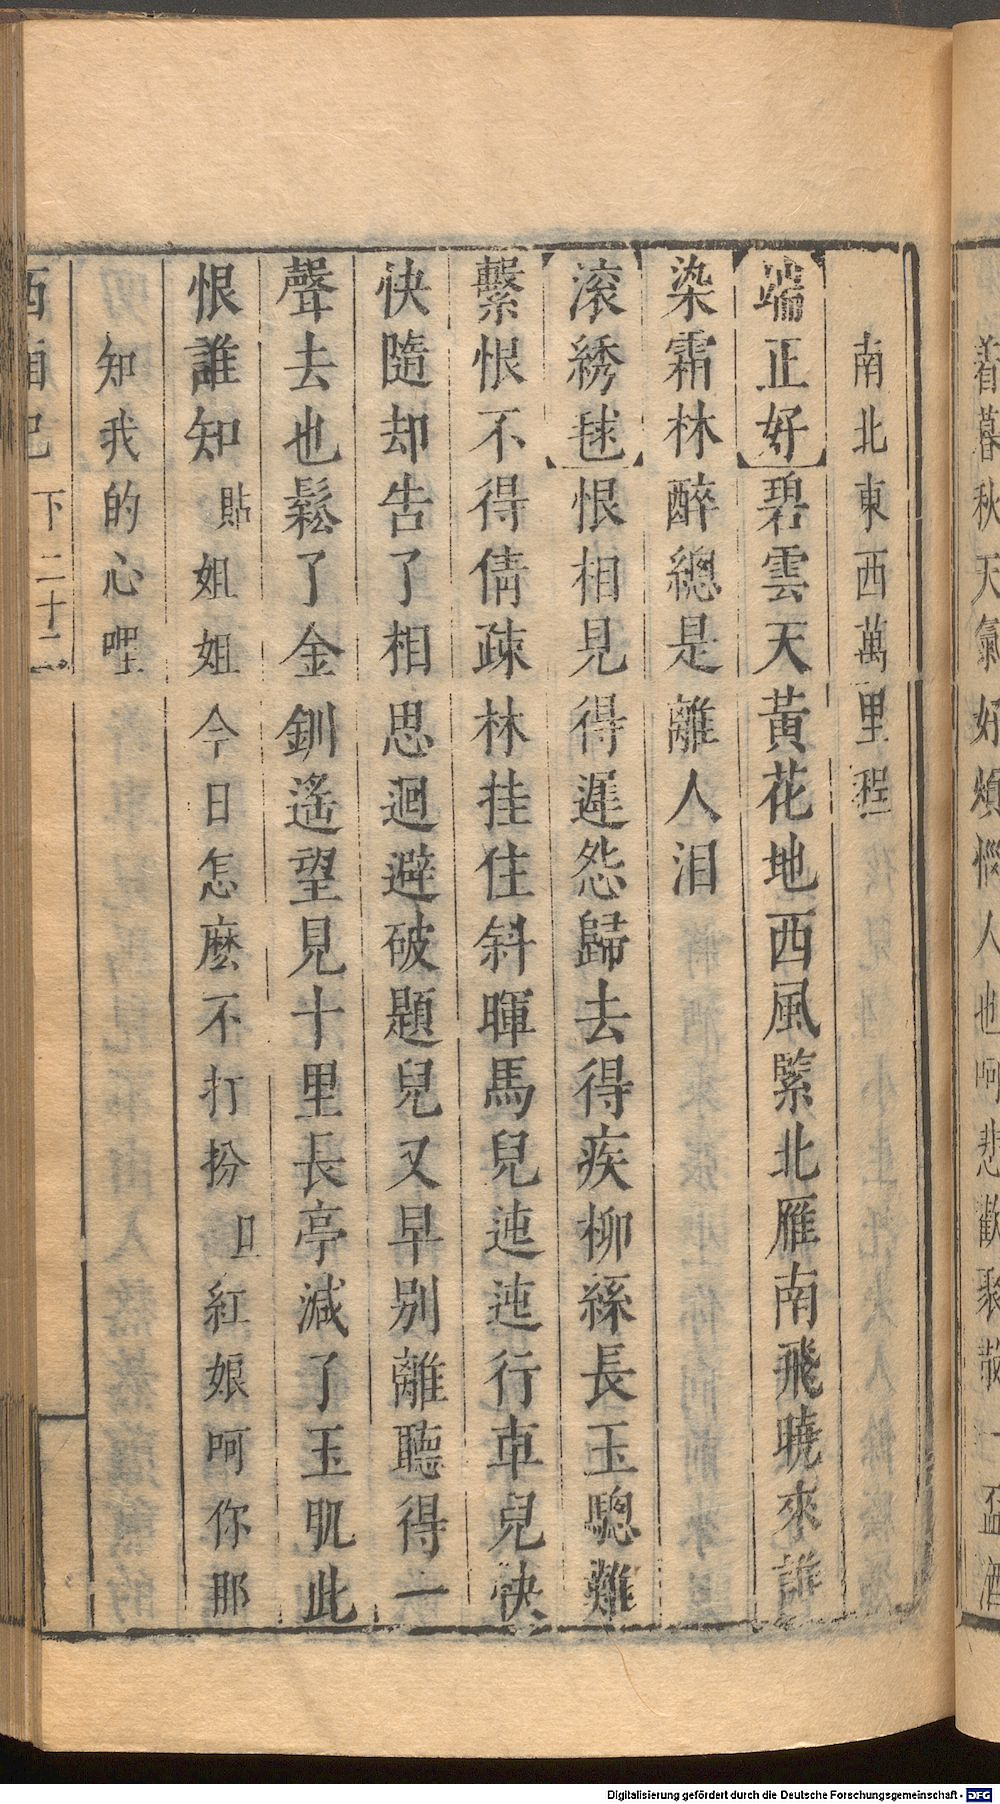 着暮秋天氣好煩惱人也呵悲歡聚散一盃酒
南北東西萬里程
端正好碧雲天黃花地西風緊北雁南飛曉來誰
染霜林醉總是離人泪
滚綉毬恨相見得遲怨歸去得疾柳絲長玉驄難
繫恨不得倩疎林挂住斜暉馬兒迍迍行車兒快
快隨却告了相思迴避破題兒又早別離聽得一
聲去也鬆了金釧遙望見十里長亭減了玉肌此
恨誰知貼姐姐今日怎麽不打扮旦紅娘呵你那
知我的心哩
西廂記 下 二十二
Digitalisierung gefördert durch die Deutsche Forschungsgemeinschaft - DFG